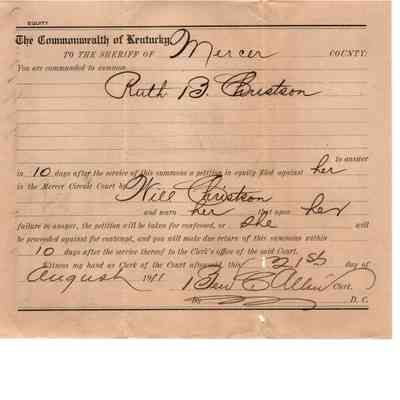 EQUITY
The Commonwealth of Kentucky,
TO THE SHERIFF OF Mercer COUNTY:
You are commanded to summon
Ruth B. Christson
to answer
in 10 days after the service of this summons a petition in equity filed against her
in the Mercer Circuit Court by Will Christson
and warn her that upon her
failure to answer, the petition will be taken for confessed, or she will
be proceeded against for contempt, and you will make due return of this summons within
10 days after the service thereof to the Clerk's office of the said Court.
Witness my hand as Clerk of the Court aforesaid, this 21st day of
August 1911 Ben C Allin Clerk.
By D. C.